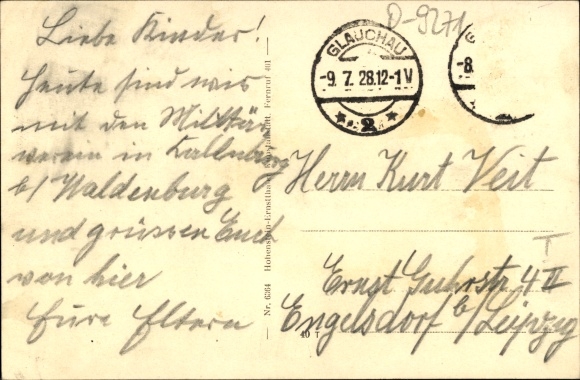 D-9271
Liebe Kinder!
Heute sind wir
mit den Militär
verein in Callenberg
b/ Waldenburg
und grüssen Euch
von hier
Eure Eltern
GLAUCHAU
-9. 7. 28.12-1 V
* 2 *
-8.
Nr. 6364 Hohenstein-Ernstthal Fernruf 401
Herrn Kurt Veit
Ernst Guhrstr 4 II
Engelsdorf b/ Leipzig
40 T